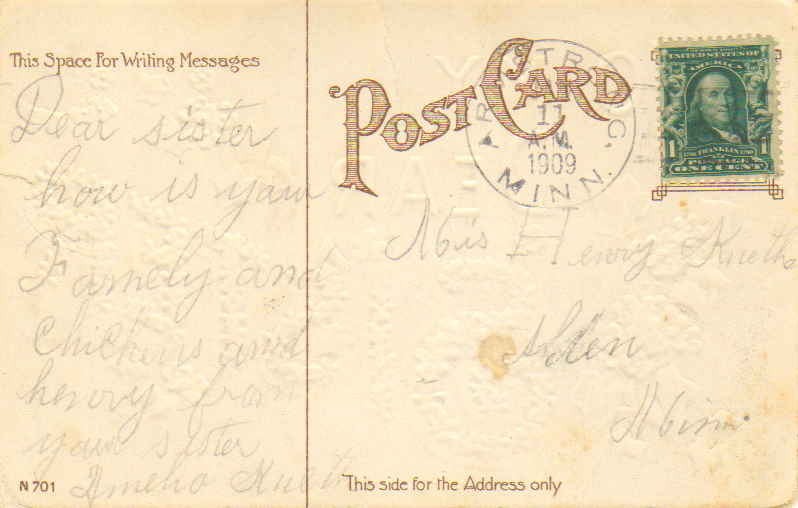 This Space For Writing Messages
Dear sister
how is yaur
Famely and
Chickens and
henry from
yaur sister
Amelia Kueth
N 701
POST CARD
ARMSTRONG,
8
11
A.M.
1909
MINN.
UNITED STATES OF
AMERICA
1 FRANKLIN 1
POSTAGE
ONE CENT
Mis Henry Kueth
Alden
Minn.
This side for the Address only